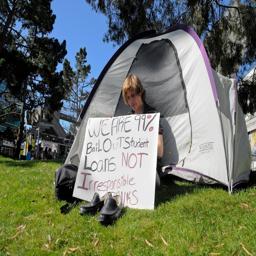 WE ARE 99%
BAiL OUT Student
Loans NOT
Irresponsible
BANKS